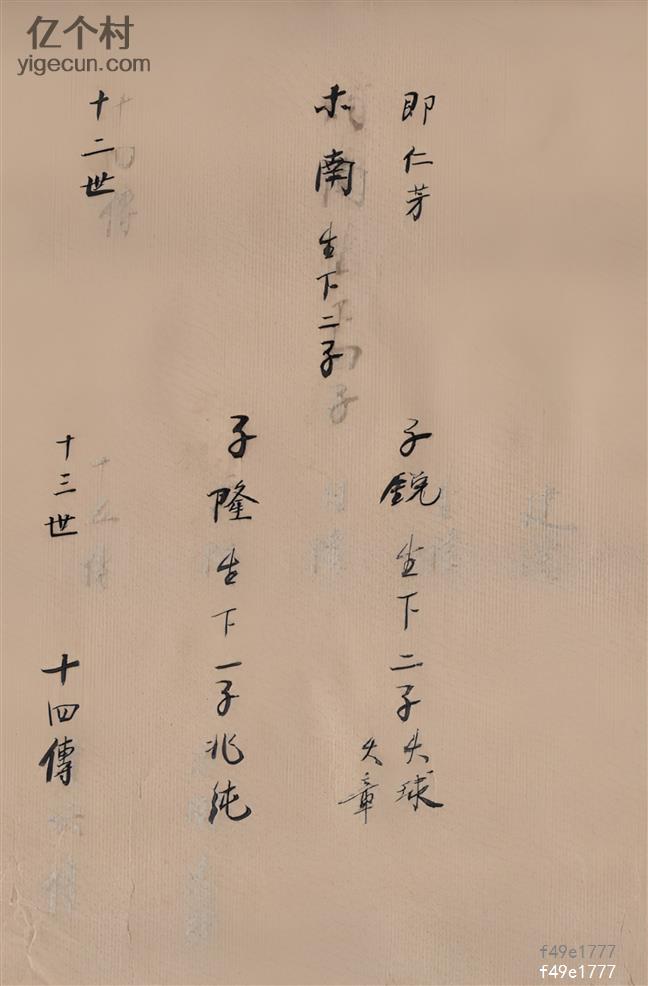 亿个村
yigecun.com
即仁芳
南生下二子
十二世
子銳生下二子
球
章
子隆生下一子兆純
十三世
十四傳
f49e1777
f49e1777